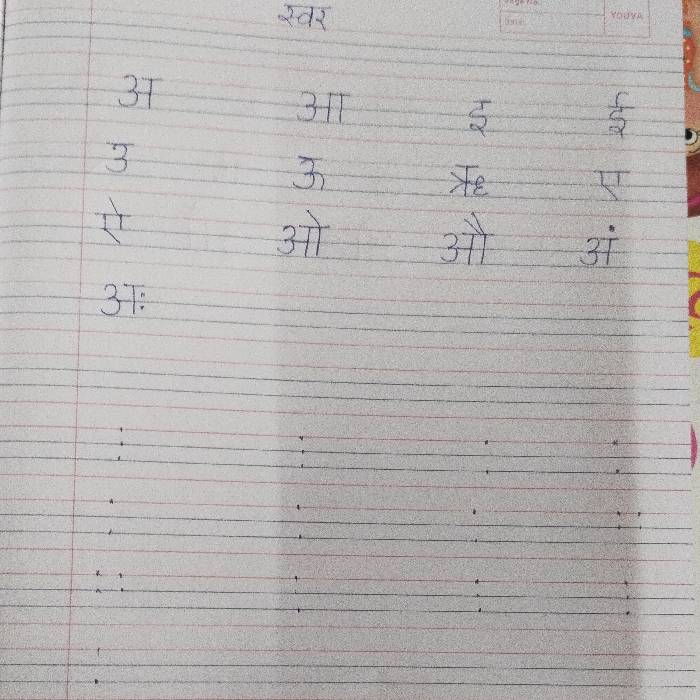 Page No.
Date:
YOUVA
स्वर
अ आ इ ई
उ ऊ ऋ ए
ऐ ओ औ अं
अः